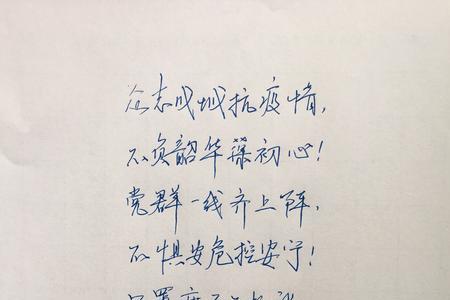 众志成城抗疫情,
不负韶华葆初心!
党群一线齐上阵,
不惧安危控安宁!